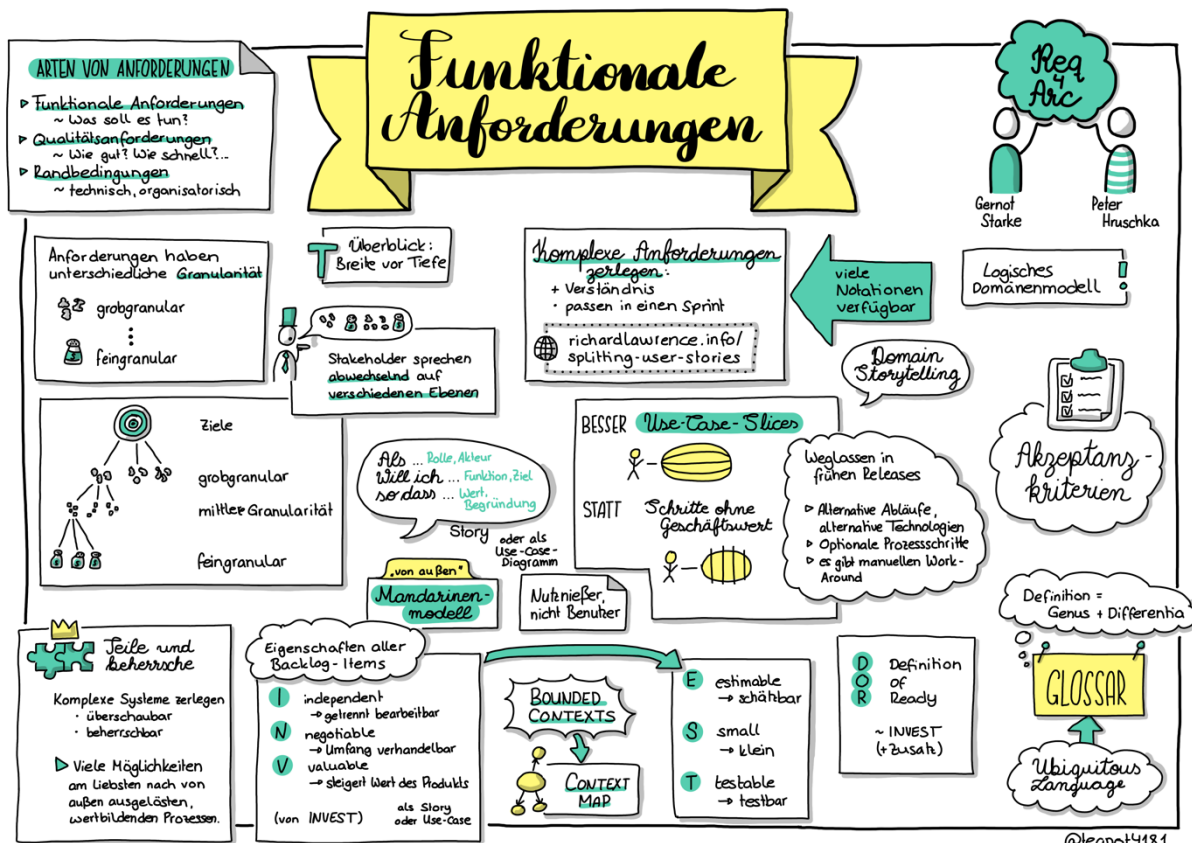 Funktionale
Anforderungen
ARTEN VON ANFORDERUNGEN
▷ Funktionale Anforderungen
~ Was soll es tun?
▷ Qualitätsanforderungen
~ Wie gut? Wie schnell?...
▷ Randbedingungen
~ technisch, organisatorisch
Req
4
Arc
Gernot
Starke
Peter
Hruschka
Anforderungen haben
unterschiedliche Granularität
grobgranular
feingranular
T Überblick:
Breite vor Tiefe
Stakeholder sprechen
abwechselnd auf
verschiedenen Ebenen
Komplexe Anforderungen
zerlegen:
+ Verständnis
· passen in einen Sprint
richardlawrence.info/
splitting-user-stories
viele
Notationen
verfügbar
Logisches
Domänenmodell !
Domain
Storytelling
Akzeptanz-
kriterien
Ziele
grobgranular
mittlere Granularität
feingranular
Als ... Rolle, Akteur
Will ich ... Funktion, Ziel
so dass ... Wert,
Begründung
Story
oder als
Use-Case-
Diagramm
BESSER Use-Case-Slices
STATT Schritte ohne
Geschäftswert
Weglassen in
frühen Releases
▷ Alternative Abläufe,
alternative Technologien
▷ Optionale Prozessschritte
▷ es gibt manuellen Work-
Around
„von außen"
Mandarinen-
modell
Nutznießer,
nicht Benutzer
Teile und
beherrsche
Komplexe Systeme zerlegen
· überschaubar
· beherrschbar
▷ Viele Möglichkeiten
am Liebsten nach von
außen ausgelösten,
wertbildenden Prozessen.
Eigenschaften aller
Backlog-Items
I independent
→ getrennt bearbeitbar
N negotiable
→ Umfang verhandelbar
V valuable
→ steigert Wert des Produkts
(von INVEST)
als Story
oder Use-Case
BOUNDED
CONTEXTS
CONTEXT
MAP
E estimable
→ schätzbar
S small
→ klein
T testable
→ testbar
D Definition
O of
R Ready
~ INVEST
(+Zusatz)
Definition =
Genus + Differentia
GLOSSAR
Ubiquitous
Language
@teapot4181